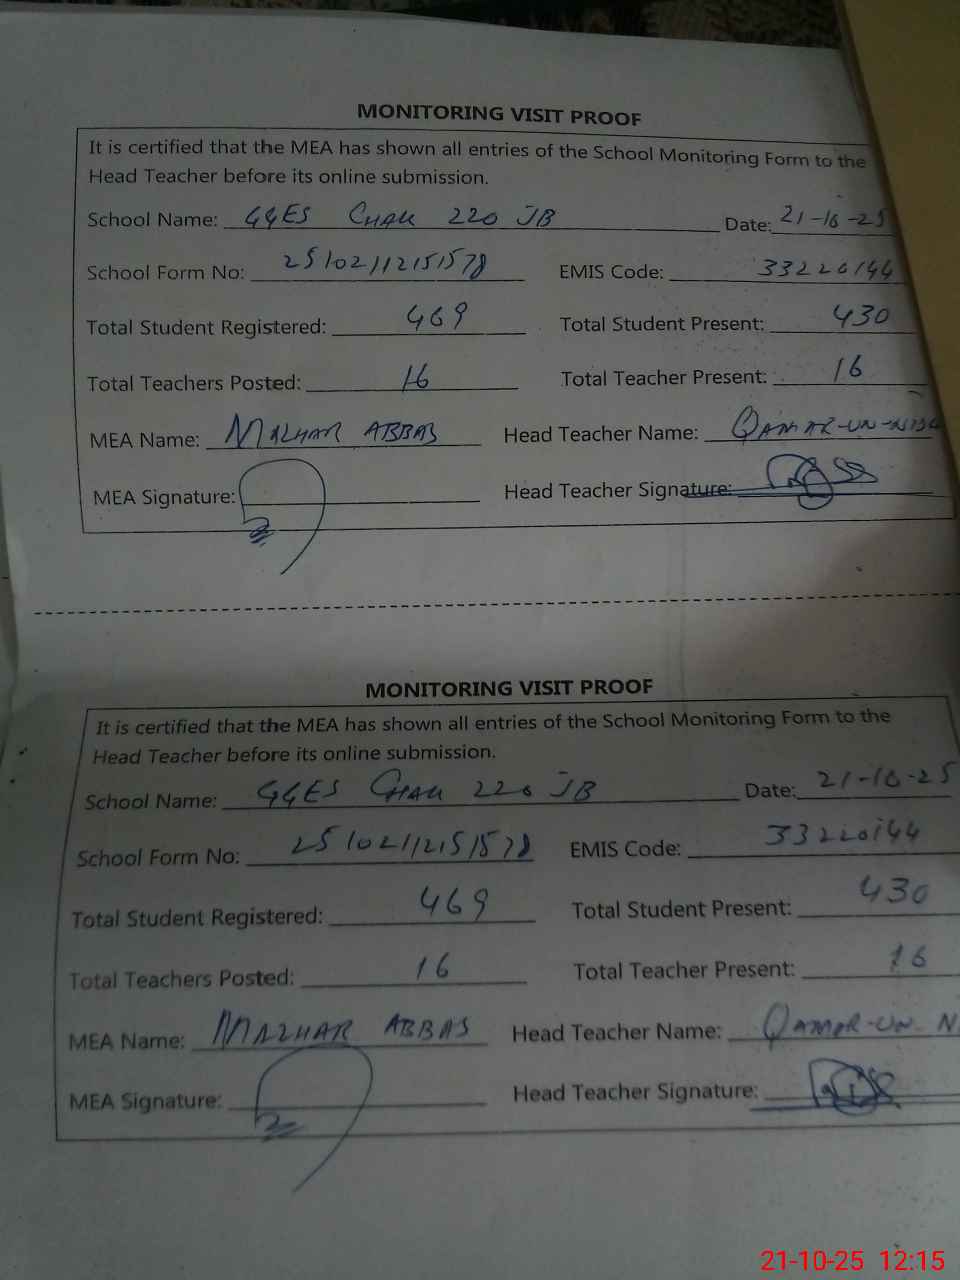 MONITORING VISIT PROOF
It is certified that the MEA has shown all entries of the School Monitoring Form to the
Head Teacher before its online submission.
School Name: GGES CHAK 220 JB Date: 21-10-25
School Form No: 25102112151578 EMIS Code: 33220144
Total Student Registered: 469 Total Student Present: 430
Total Teachers Posted: 16 Total Teacher Present: 16
MEA Name: MAZHAR ABBAS Head Teacher Name: QAMAR-UN-NISA
MEA Signature: Head Teacher Signature:
MONITORING VISIT PROOF
It is certified that the MEA has shown all entries of the School Monitoring Form to the
Head Teacher before its online submission.
School Name: GGES CHAK 220 JB Date: 21-10-25
School Form No: 25102112151578 EMIS Code: 33220144
Total Student Registered: 469 Total Student Present: 430
Total Teachers Posted: 16 Total Teacher Present: 16
MEA Name: MAZHAR ABBAS Head Teacher Name: QAMAR-UN-N
MEA Signature: Head Teacher Signature:
21-10-25 12:15